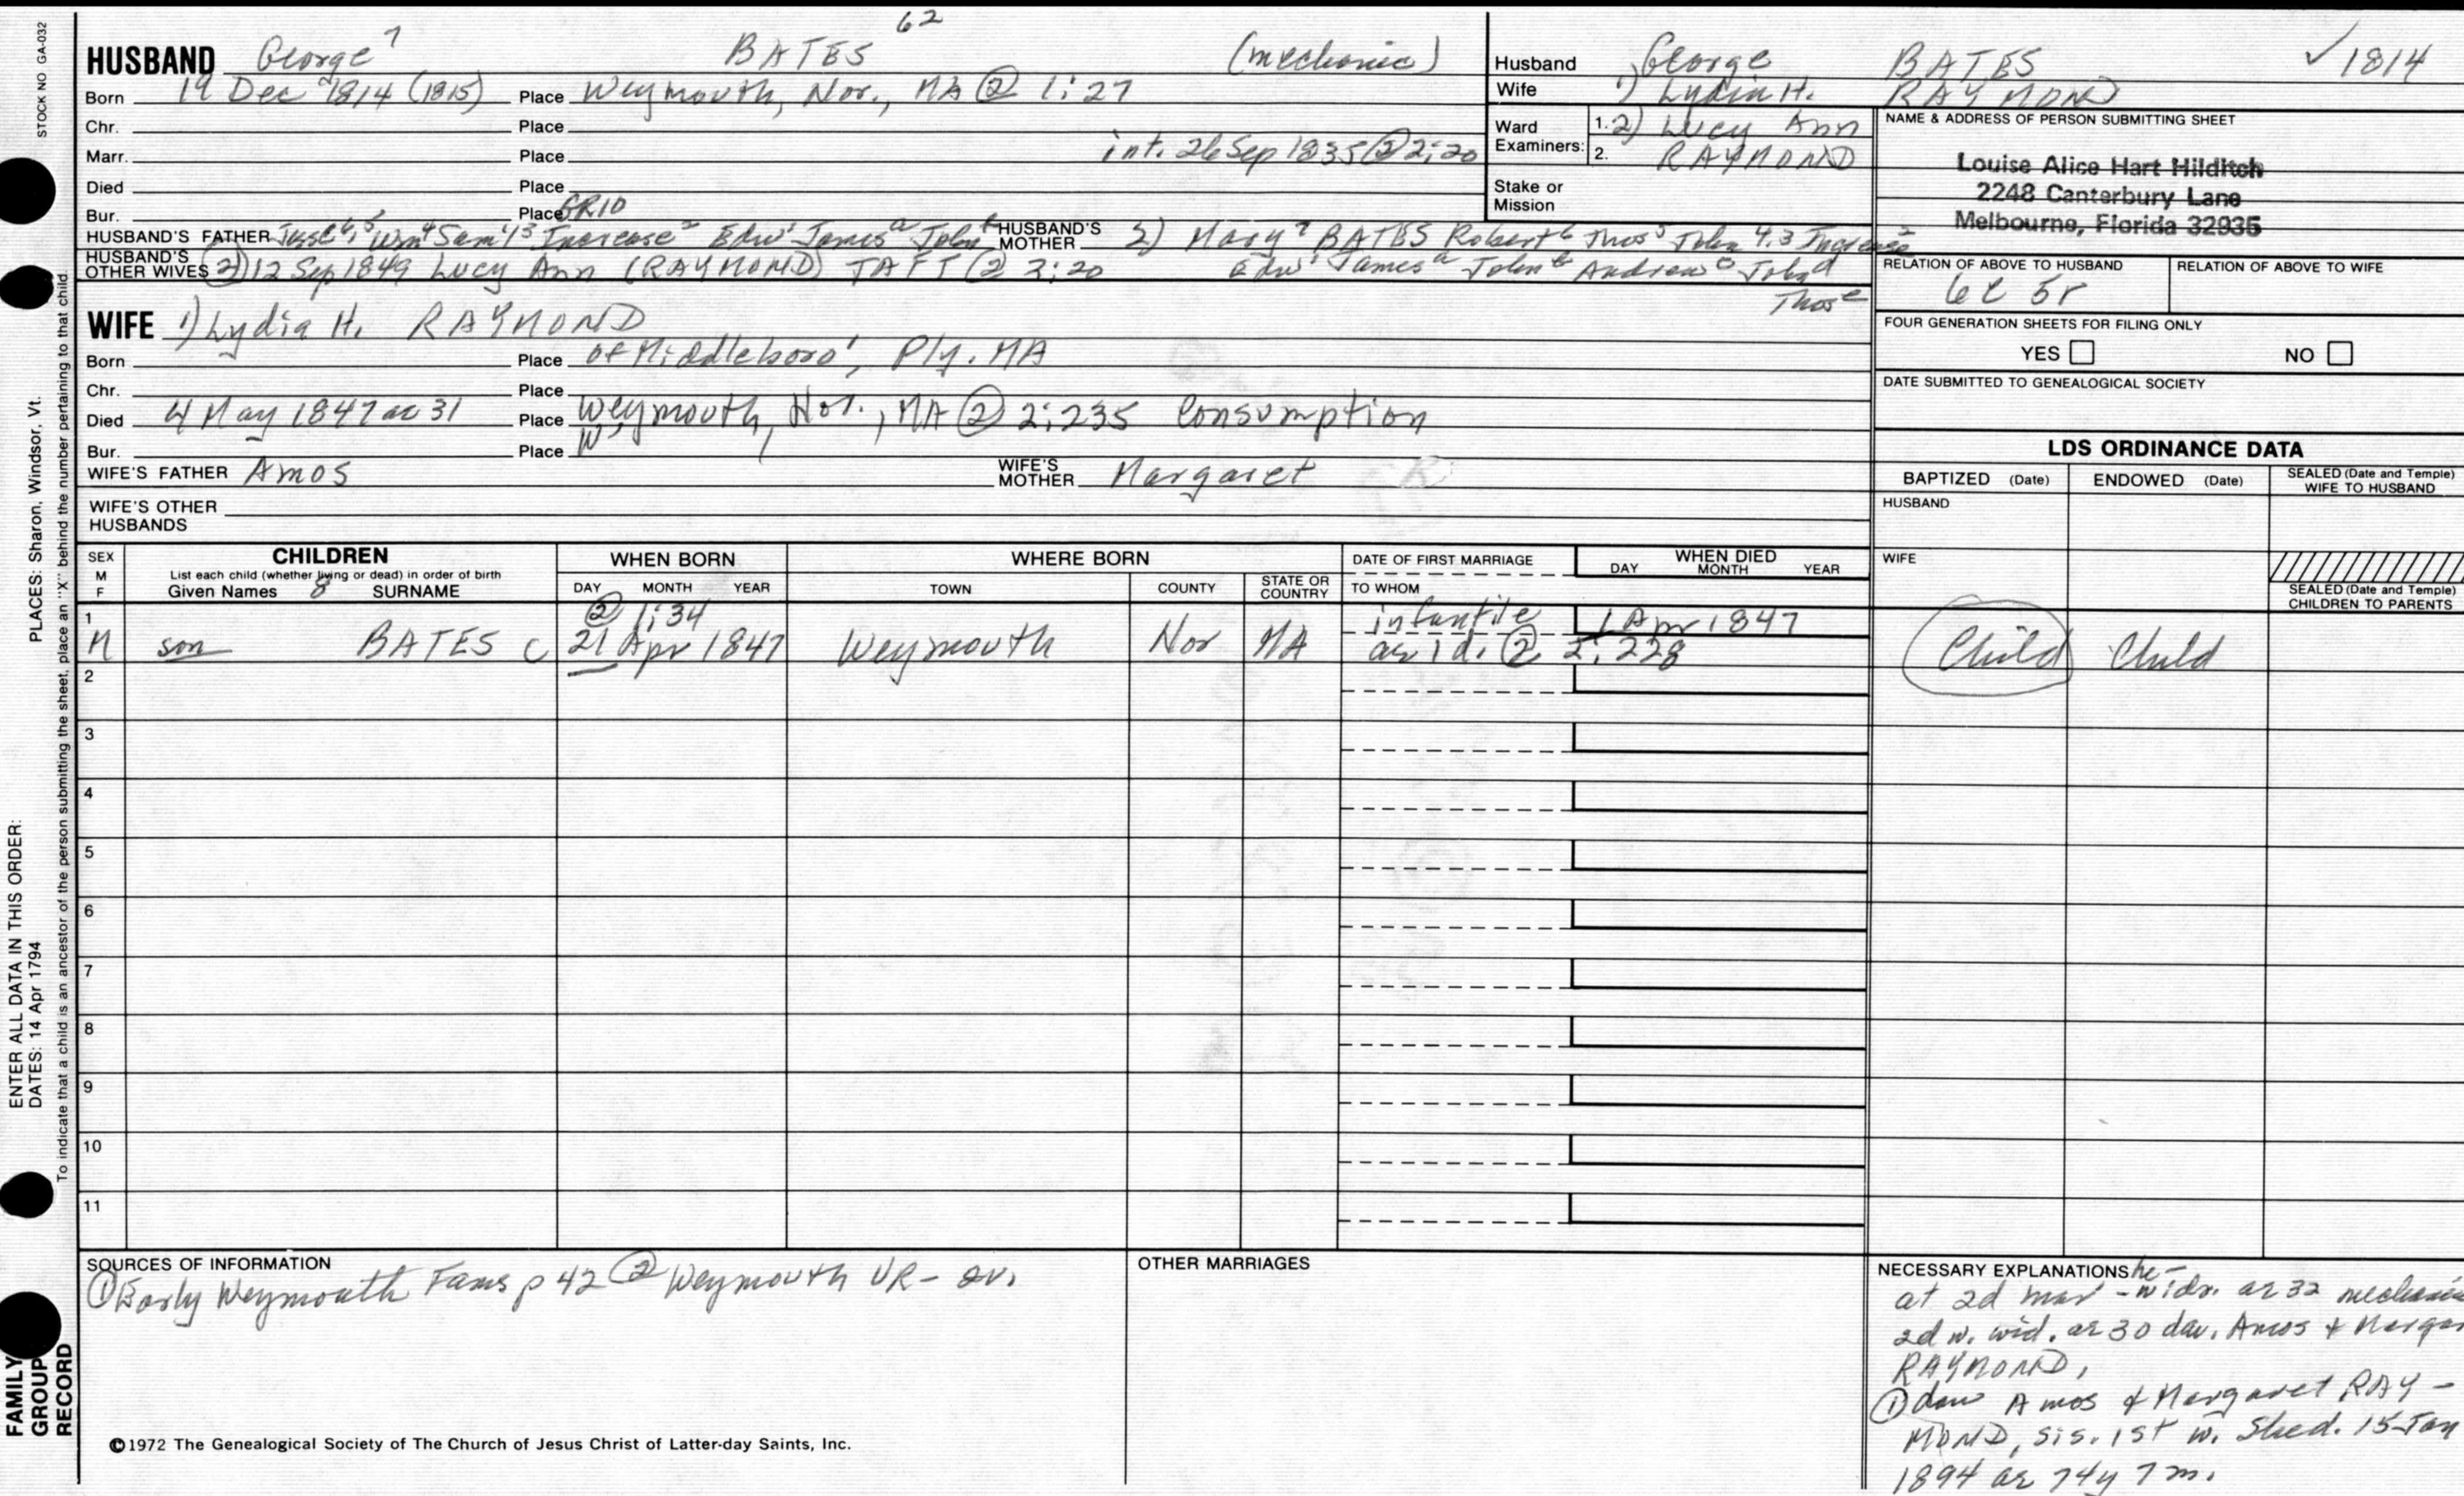 STOCK NO GA-032
PLACES: Sharon, Windsor, Vt.
ENTER ALL DATA IN THIS ORDER:
DATES: 14 Apr 1794
To indicate that a child is an ancestor of the person submitting the sheet, place an "X" behind the number pertaining to that child.
FAMILY
GROUP
RECORD
62
HUSBAND George 7 BATES (mechanic)
Born 19 Dec 1814 (1815) Place Weymouth, Nor., MA ② 1:27
Chr. Place
Marr. Place int. 26 Sep 1835 ② 2:20
Died Place
Bur. Place GR10
HUSBAND'S FATHER Jesse 6,5 Wm 4 Sam'l 3 Increase 2 Edw 1 James a John b HUSBAND'S MOTHER 2) Mary 7 BATES Robert 6 Thos 5 John 4.3 Increase 2
HUSBAND'S OTHER WIVES ② 12 Sep 1849 Lucy Ann (RAYMOND) TAFT ② 2:20 Edw 1 James a John b Andrew c John d
Thos e
WIFE 1) Lydia H. RAYMOND
Born Place of Middleboro', Ply. MA
Chr. Place
Died 4 May 1847 ae 31 Place Weymouth, Nor., MA ② 2:235 Consumption
Bur. Place W
WIFE'S FATHER Amos WIFE'S MOTHER Margaret
WIFE'S OTHER HUSBANDS
Husband George BATES ✓1814
Wife 1) Lydia H. RAYMOND
Ward Examiners: 1. 2) Lucy Ann
2. RAYMOND
Stake or Mission
NAME & ADDRESS OF PERSON SUBMITTING SHEET
Louise Alice Hart Hilditch
2248 Canterbury Lane
Melbourne, Florida 32935
RELATION OF ABOVE TO HUSBAND RELATION OF ABOVE TO WIFE
6c 5r
FOUR GENERATION SHEETS FOR FILING ONLY
YES NO
DATE SUBMITTED TO GENEALOGICAL SOCIETY
LDS ORDINANCE DATA
BAPTIZED (Date) ENDOWED (Date) SEALED (Date and Temple) WIFE TO HUSBAND
HUSBAND
WIFE
SEALED (Date and Temple) CHILDREN TO PARENTS
SEX M F
CHILDREN
List each child (whether living or dead) in order of birth
Given Names 8 SURNAME
WHEN BORN
DAY MONTH YEAR
WHERE BORN
TOWN COUNTY STATE OR COUNTRY
DATE OF FIRST MARRIAGE
TO WHOM
WHEN DIED
DAY MONTH YEAR
1 ② 1:34 infantile 1 Apr 1847
M son BATES c 21 Apr 1847 Weymouth Nor MA ae 1d. ② 2:228 Child Child
2
3
4
5
6
7
8
9
10
11
SOURCES OF INFORMATION
① Early Weymouth Fams p 42 ② Weymouth VR-
OTHER MARRIAGES
NECESSARY EXPLANATIONS he-
at 2d mar - widr. ae 32
2d w. wid. ae 30 dau. Amos &
RAYMOND.
① dau Amos & Margaret RAY-
MOND, sis. 1st w. She d. 15 Jan
1894 ae 74y 7m.
©1972 The Genealogical Society of The Church of Jesus Christ of Latter-day Saints, Inc.